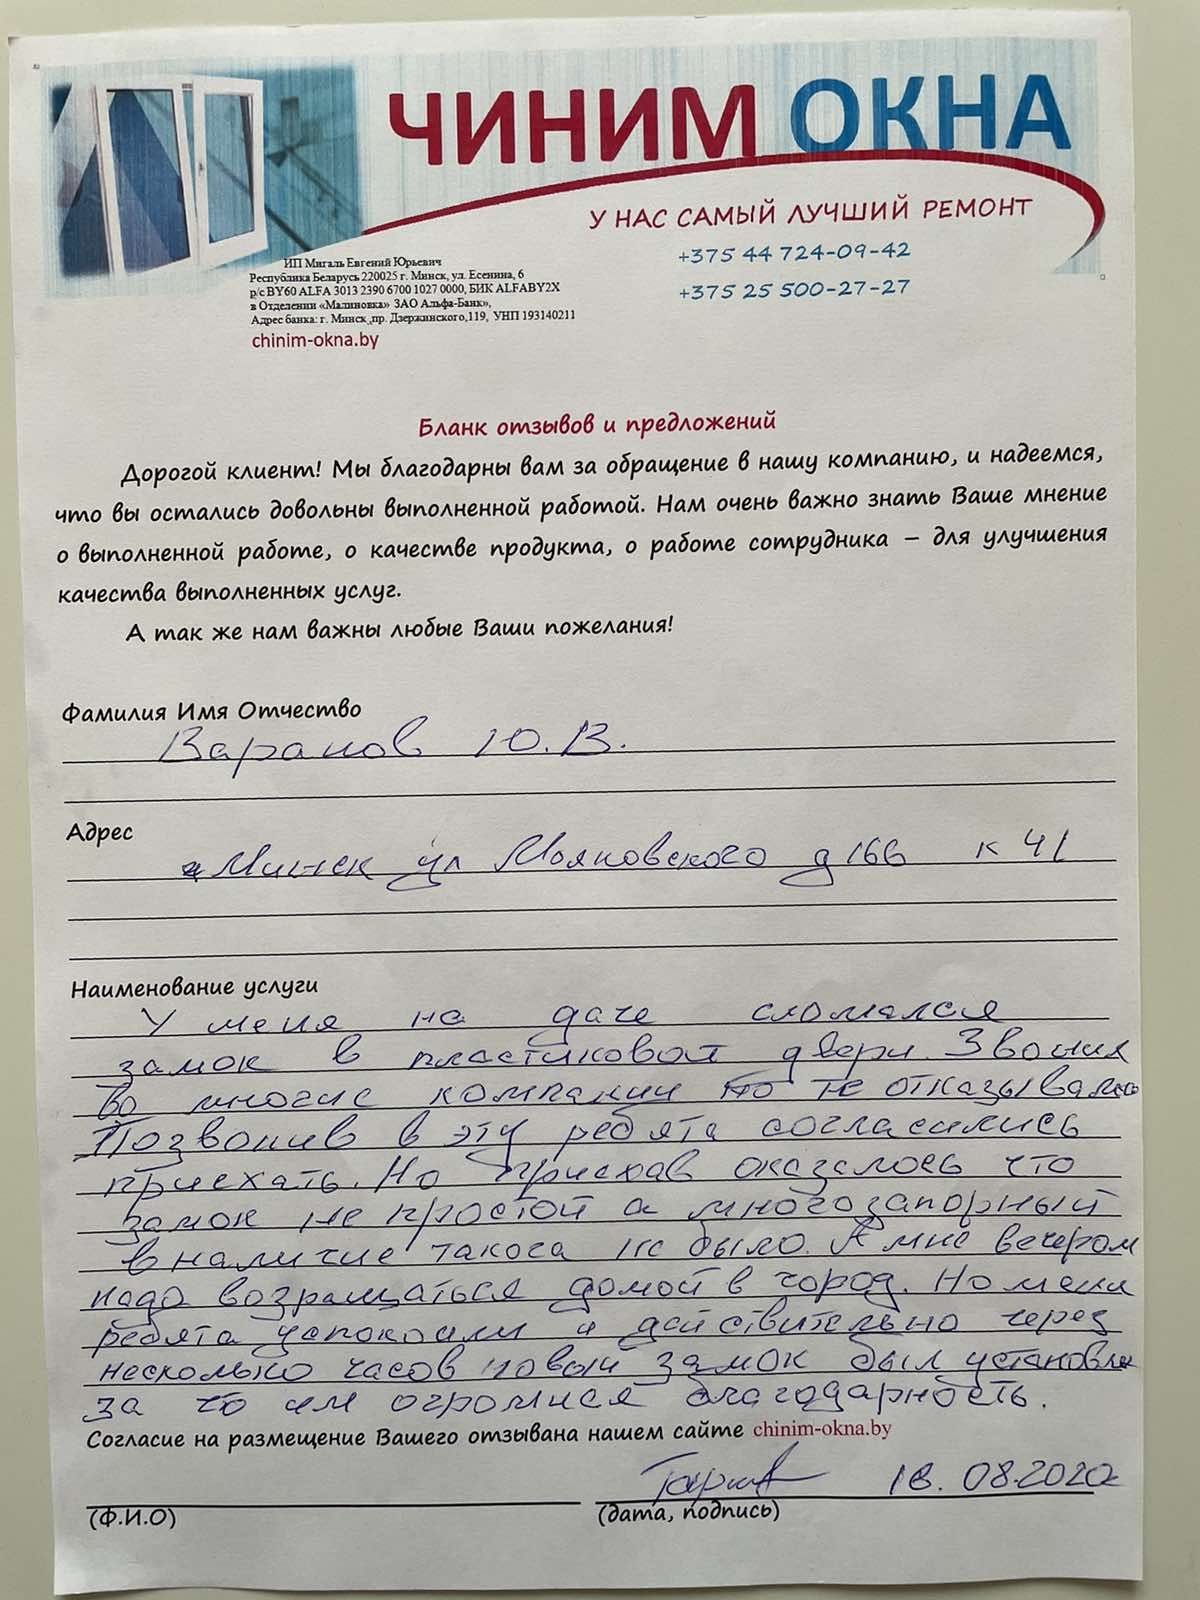 ЧИНИМ ОКНА
У НАС САМЫЙ ЛУЧШИЙ РЕМОНТ
+375 44 724-09-42
+375 25 500-27-27
ИП Мигаль Евгений Юрьевич
Республика Беларусь 220025 г. Минск, ул. Есенина, 6
р/с BY60 ALFA 3013 2390 6700 1027 0000, БИК ALFABY2X
в Отделении «Малиновка» ЗАО Альфа-Банк»,
Адрес банка: г. Минск ,пр. Дзержинского,119, УНП 193140211
chinim-okna.by
Бланк отзывов и предложений
Дорогой клиент! Мы благодарны вам за обращение в нашу компанию, и надеемся,
что вы остались довольны выполненной работой. Нам очень важно знать Ваше мнение
о выполненной работе, о качестве продукта, о работе сотрудника – для улучшения
качества выполненных услуг.
А так же нам важны любые Ваши пожелания!
Фамилия Имя Отчество
Варанов Ю.В.
Адрес
Минск ул Мояковского д 16в к 41
Наименование услуги
У меня на даче сломался
замок в пластиковой двери. Звонил
во многие компании но те отказывались
Позвонив в эту ребята согласились
приехать. Но приехав оказалось что
замок не простой а многозапорный
в наличие такога не было. А мне вечером
надо возращаться домой в город. Но меня
ребята успокоили и действительно через
несколько часов новый замок был установлен
за что им огромная благодарность.
Согласие на размещение Вашего отзывана нашем сайте chinim-okna.by
18.08.2020
(Ф.И.О)
(дата, подпись)